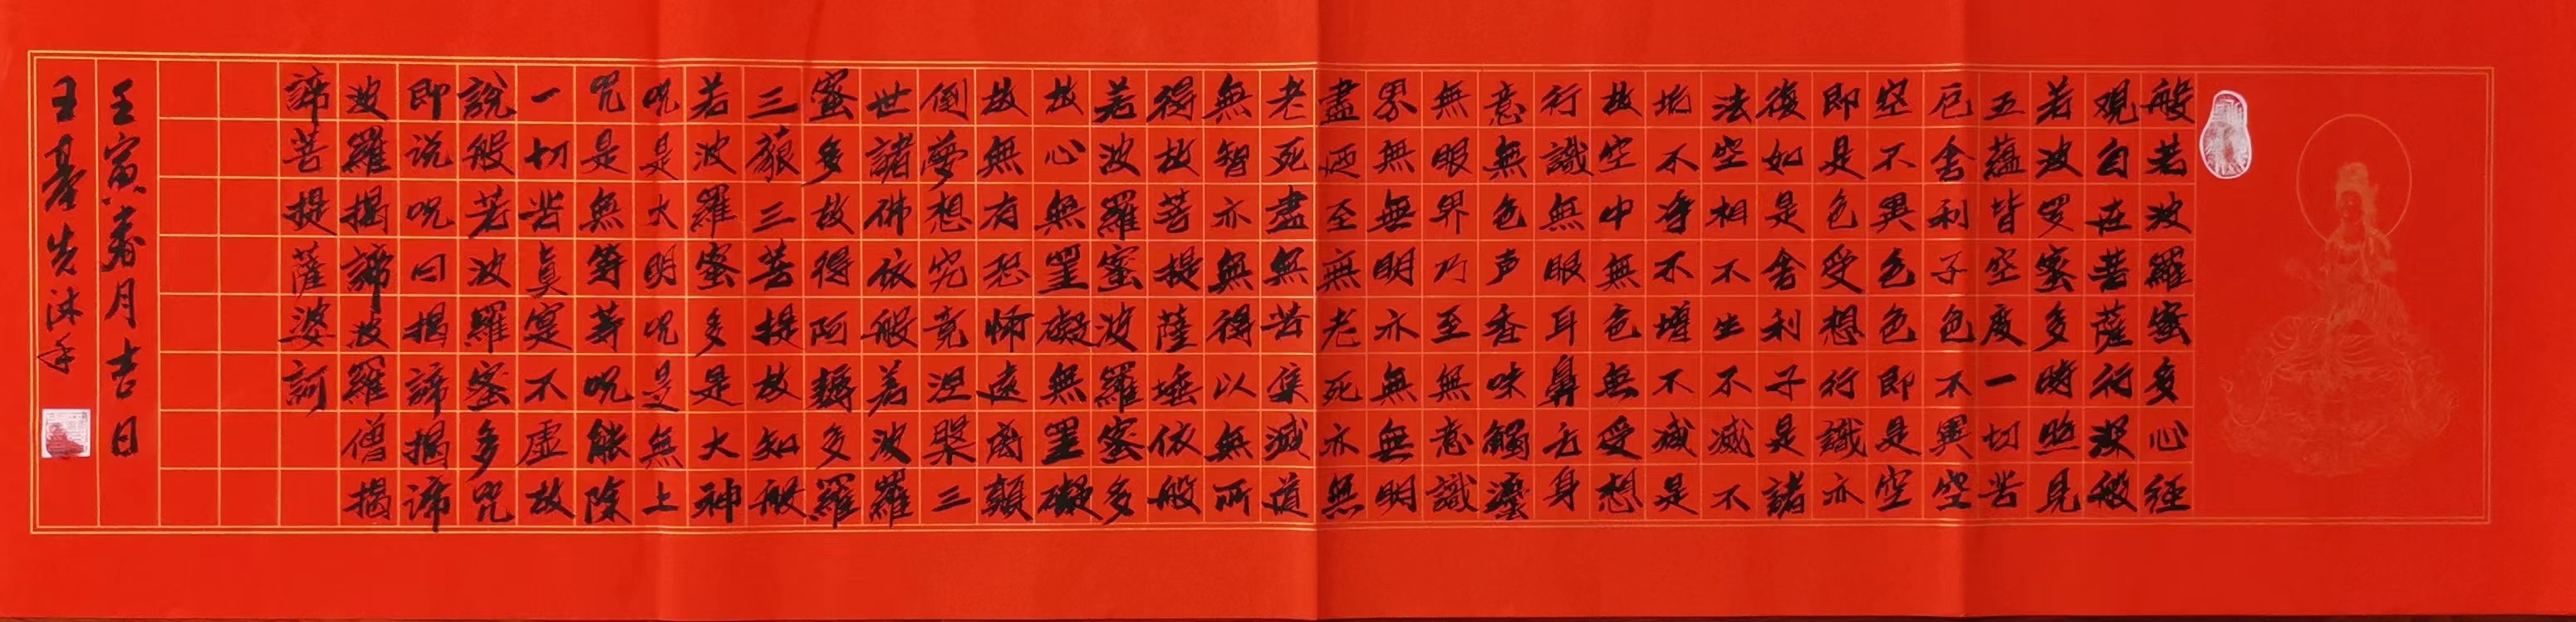 般若波羅蜜多心経
观自在菩薩行深般
若波罗蜜多時照見
五蘊皆空度一切苦
厄舍利子色不異空
空不異色色即是空
即是色受想行識亦
復如是舍利子是諸
法空相不生不滅不
垢不净不增不减是
故空中無色無受想
行識無眼耳鼻舌身
意無色声香味觸灋
無眼界乃至無意識
界無無明亦無無明
盡廼至無老死亦無
老死盡無苦集滅道
無智亦無得以無所
得故菩提薩埵依般
若波羅蜜波羅蜜多
故心無罣礙無罣礙
故無有恐怖遠离顛
倒夢想究竟涅槃三
世諸佛依般若波羅
蜜多故得阿耨多羅
三藐三菩提故知般
若波羅蜜多是大神
呪是大明呪是無上
咒是無等等呪能除
一切苦真寔不虚故
說般若波羅蜜多咒
即说呪曰揭諦揭諦
波羅揭諦波羅僧揭
諦菩提薩婆訶
壬寅春月吉日
王先沐手